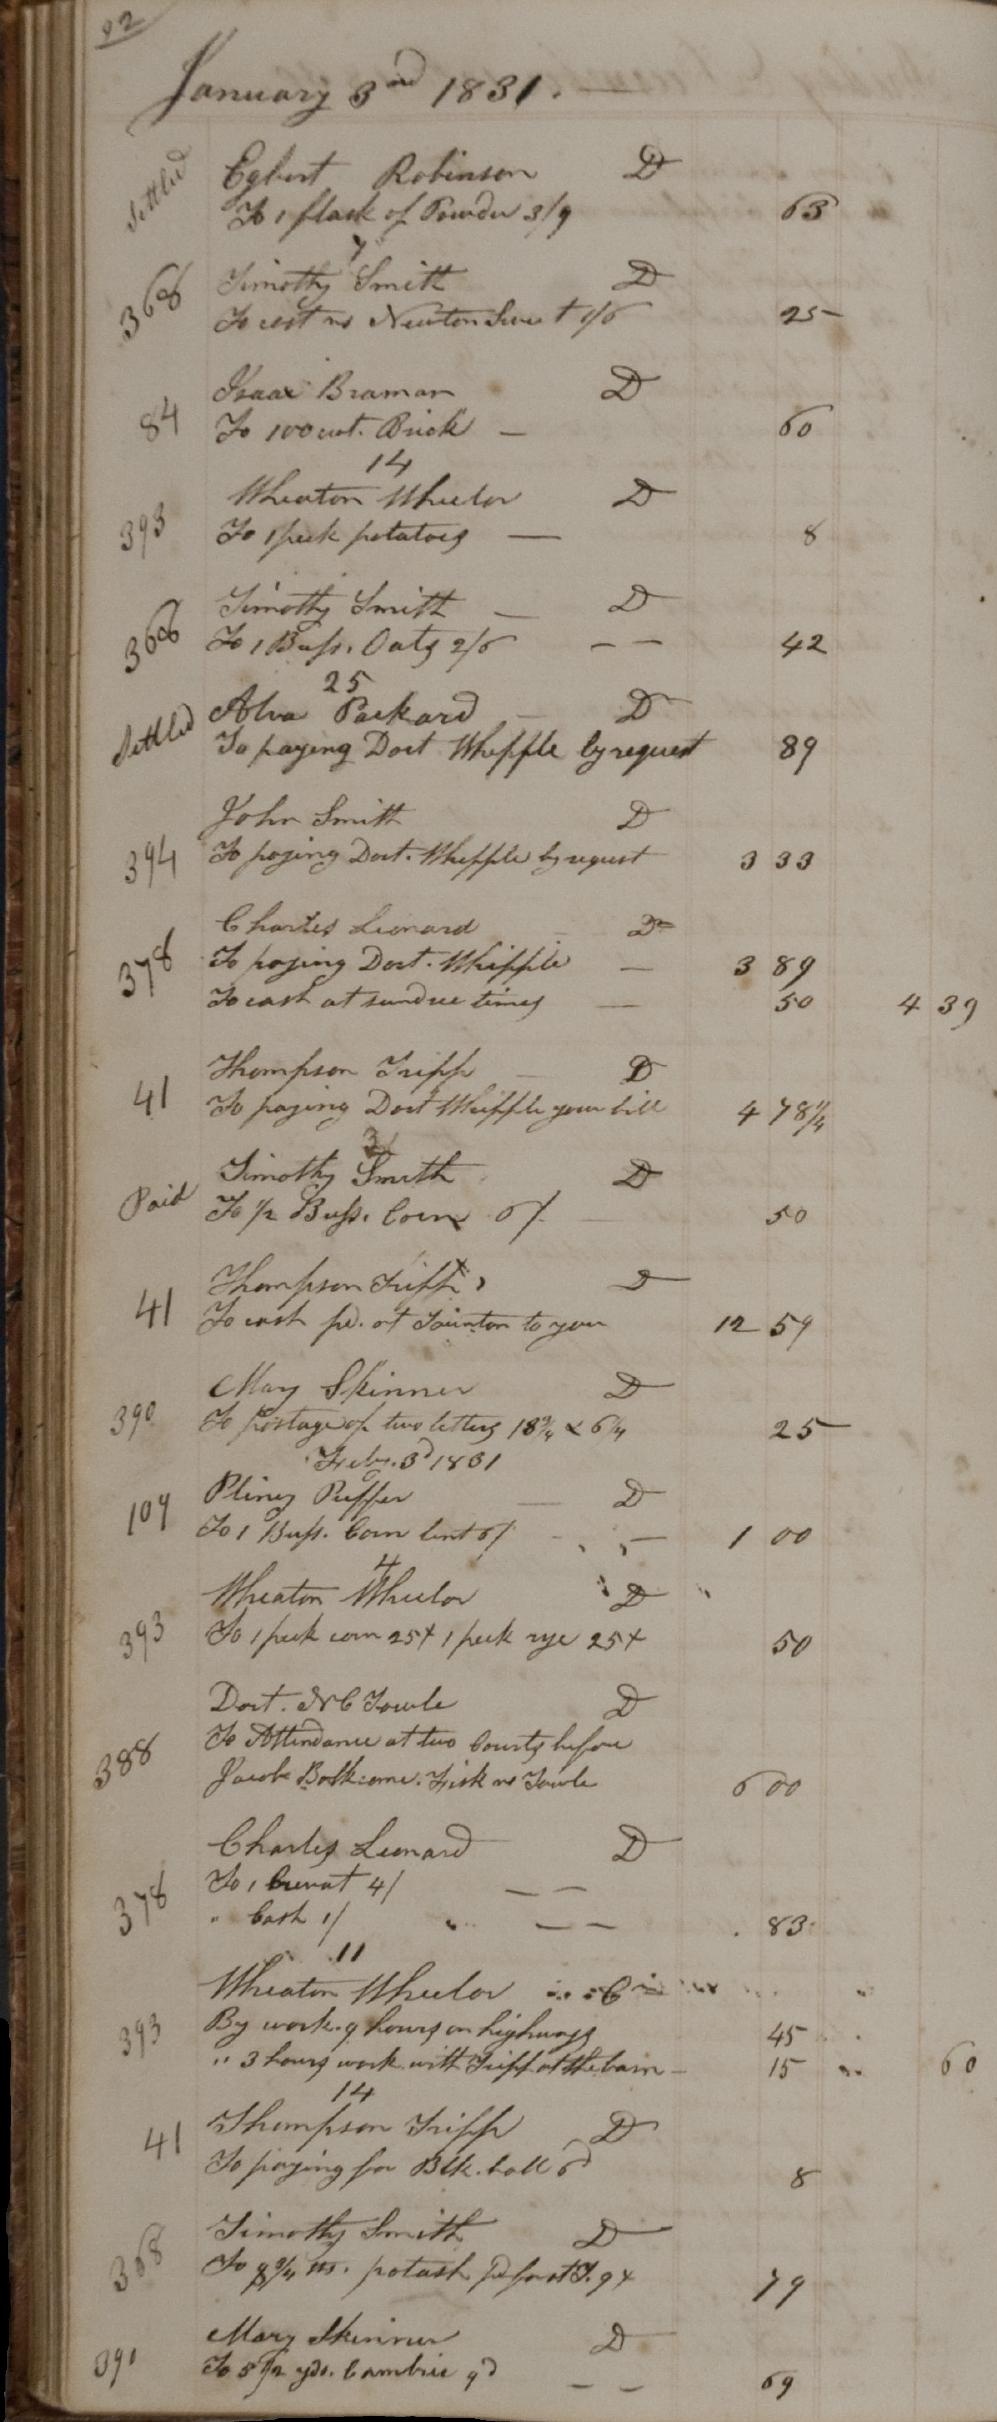 92
January 3nd 1831.
Settled
Egbert Robinson D
To 1 flask of Powder 3/9 63
7
368 Timothy Smith D
To cost vs Newton Swe t 1/6 25
Isaac Braman D
84 To 100 wt. Brick 60
14
Wheaton Wheelor D
393 To 1 peck potatoes 8
Timothy Smith D
368 To 1 Bush. Oats 2/6 42
25
Settled Alva Packard D
To paying Doct Whipple by request 89
John Smith D
394 To paying Doct. Whipple by request 3 33
Charles Leonard Dr
378 To paying Doct. Whipple 3 89
To cash at sundree times 50 4 39
Thompson Tripp D
41 To paying Doct Whipple your bill 4 78 1/4
31
Timothy Smith D
Paid To 1/2 Bush. Corn 6/ 50
Thompson Tripp D
41 To cash pd. at Taunton to you 12 59
Mary Skinner D
390 To postage of two letters 18 3/4 & 6 1/4 25
Feby. 3d 1831
Pliney Puffer D
109 To 1 Bush. Corn lent 6/ 1 00
4
Wheaton Wheelor D
393 To 1 peck corn 25+ 1 peck rye 25+ 50
Doct. N C Towle D
To Attendance at two Courts before
388 Jacob Bolkcome. Fisk vs Towle 6 00
Charles Leonard D
To 1 Cravat 4/
378 " Cash 1/ 83
11
Wheaton Wheelor Cr
393 By work 9 hours on highways 45
" 3 hours work with Tripp at the barn 15 60
14
Thompson Tripp D
41 To paying for Blk. ball 6d 8
Timothy Smith D
368 To 8 3/4 lbs. potash 9+ 79
Mary Skinner D
390 To 5 1/2 yds. Cambric 9d 69